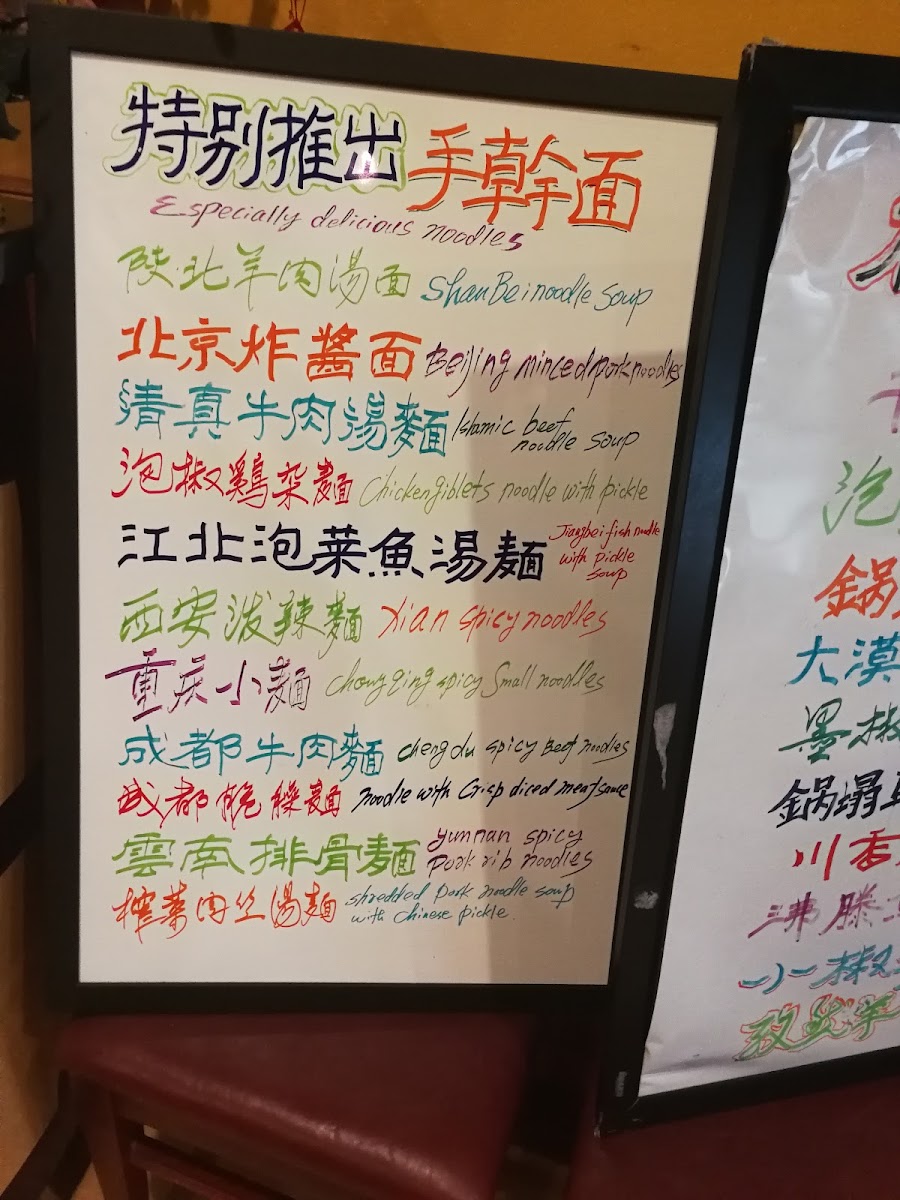 特别推出 手幹面
Especially delicious noodles
陕北羊肉湯面 ShanBei noodle soup
北京炸醬面 Beijing minced pork noodles
清真牛肉湯麵 Islamic beef noodle soup
泡椒鷄杂麵 Chicken giblets noodle with pickle
江北泡菜魚湯麵 Jiangbei fish noodle with pickle soup
西安泼辣麵 Xian spicy noodles
重庆小麵 chongqing spicy Small noodles
成都牛肉麵 chengdu spicy Beef noodles
成都脆臊麵 noodle with Crisp diced meat sauce
雲南排骨麵 yunnan spicy pork rib noodles
榨菜肉丝湯麵 shredded pork noodle soup with Chinese pickle.
泡
鍋
大漠
墨椒
鍋塌
川香
沸滕
小椒
孜然羊